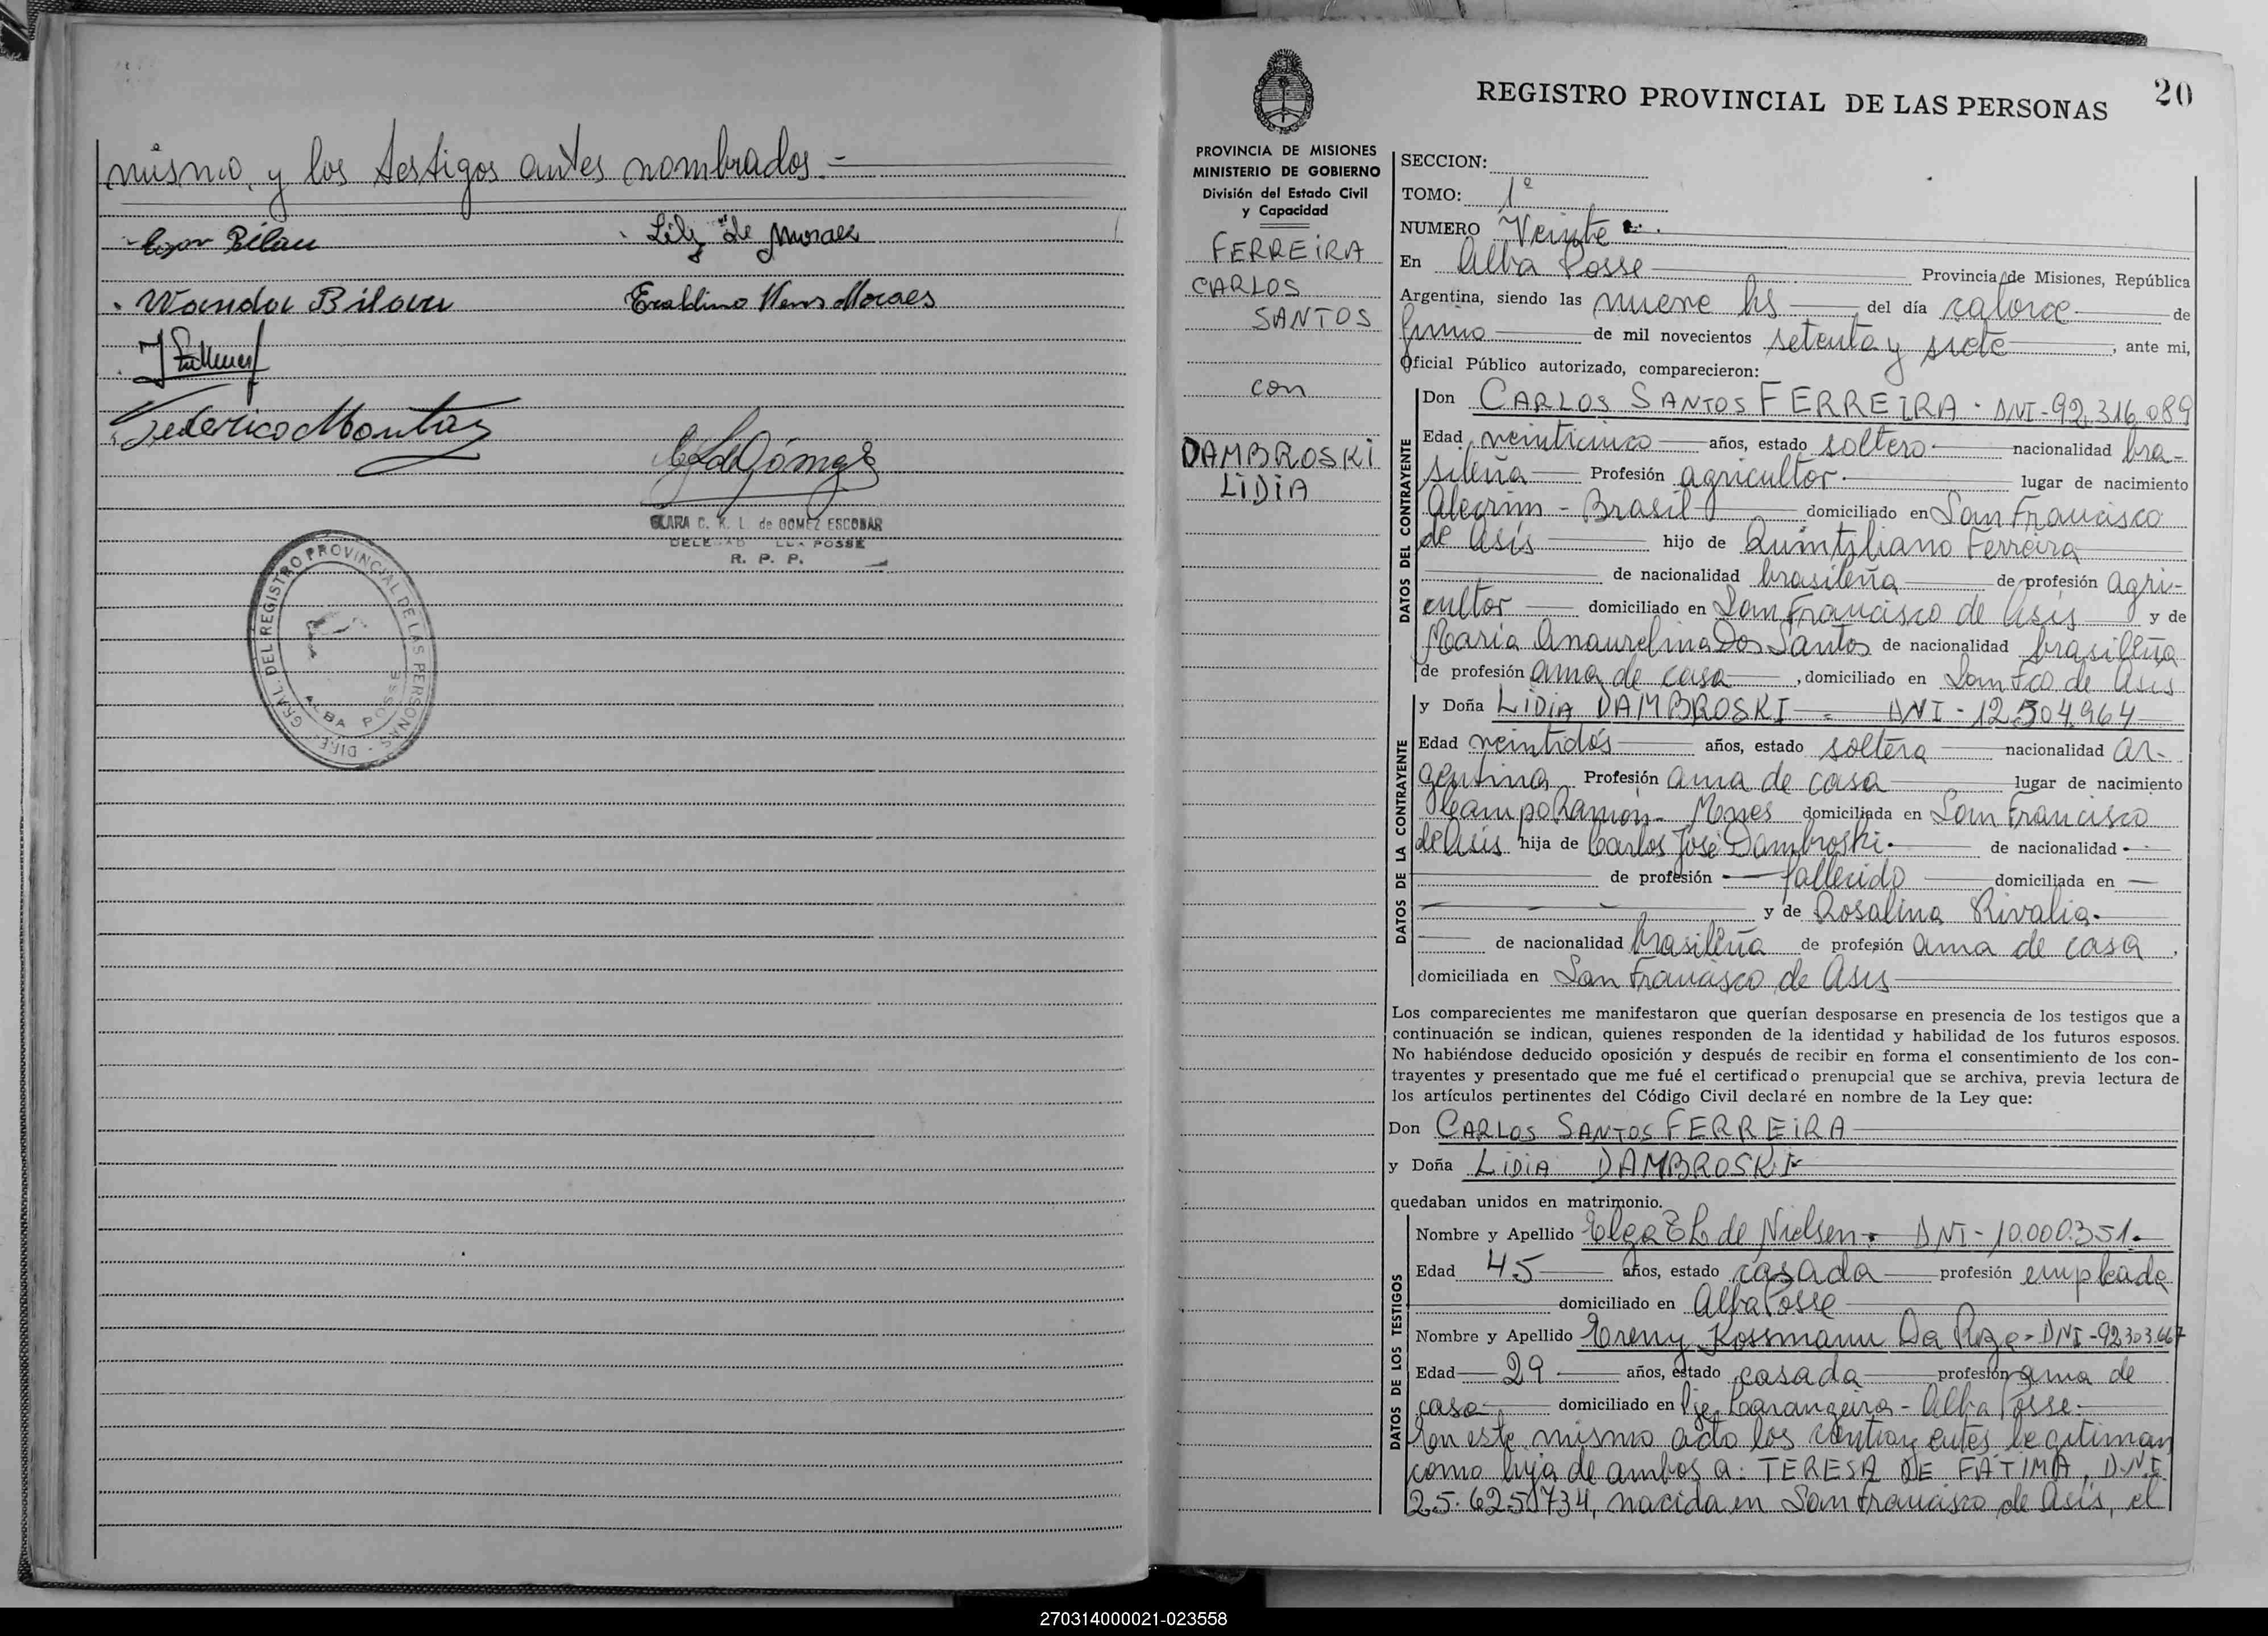 mismo, y los testigos antes nombrados.-
Lily de Moraes
Wanda Bilau
Eraldino Moraes
Federico Montaz
CLARA C. K. L. de GOMEZ ESCOBAR
R. P. P.
DIRE. GRAL DEL REGISTRO PROVINCIAL DE LAS PERSONAS
ALBA POSSE
20
REGISTRO PROVINCIAL DE LAS PERSONAS
PROVINCIA DE MISIONES
MINISTERIO DE GOBIERNO
División del Estado Civil
y Capacidad
FERREIRA
CARLOS
SANTOS
con
DAMBROSKI
LIDIA
SECCION:
TOMO: 1º
NUMERO Veinte
En Alba Posse Provincia de Misiones, República
Argentina, siendo las nueve hs del día catorce de
junio de mil novecientos setenta y siete, ante mi,
Oficial Público autorizado, comparecieron:
DATOS DEL CONTRAYENTE
Don CARLOS SANTOS FERREIRA - DNI-92.316.089
Edad veinticinco años, estado soltero nacionalidad bra-
sileña Profesión agricultor lugar de nacimiento
Alecrim - Brasil domiciliado en San Francisco
de Asís hijo de Quintiliano Ferreira
de nacionalidad brasileña de profesión agri-
cultor domiciliado en San Francisco de Asís y de
María Anaurelina Dos Santos de nacionalidad brasileña
de profesión ama de casa, domiciliado en San Fco. de Asís
DATOS DE LA CONTRAYENTE
y Doña LIDIA DAMBROSKI - DNI-12.504.964
Edad veintidós años, estado soltera nacionalidad ar-
gentina Profesión ama de casa lugar de nacimiento
Campo Ramón - Mnes domiciliada en San Francisco
de Asís hija de Carlos José Dambroski. de nacionalidad
de profesión fallecido domiciliada en
y de Rosalina Rivalia.
de nacionalidad brasileña de profesión ama de casa,
domiciliada en San Francisco de Asís
Los comparecientes me manifestaron que querían desposarse en presencia de los testigos que a
continuación se indican, quienes responden de la identidad y habilidad de los futuros esposos.
No habiéndose deducido oposición y después de recibir en forma el consentimiento de los con-
trayentes y presentado que me fué el certificado prenupcial que se archiva, previa lectura de
los artículos pertinentes del Código Civil declaré en nombre de la Ley que:
Don CARLOS SANTOS FERREIRA
y Doña LIDIA DAMBROSKI
quedaban unidos en matrimonio.
DATOS DE LOS TESTIGOS
Nombre y Apellido Elga de Nielsen - DNI-10.000.351.
Edad 45 años, estado casada profesión empleada
domiciliado en Alba Posse
Nombre y Apellido Ereny Kossmann Da Roza - DNI-92.303.667
Edad 29 años, estado casada profesión ama de
casa domiciliado en Pje Laranzeira - Alba Posse.
En este mismo acto los contrayentes legitiman
como hija de ambos a: TERESA DE FÁTIMA, D.N.I.
25.625.734, nacida en San Francisco de Asís, el
270314000021-023558